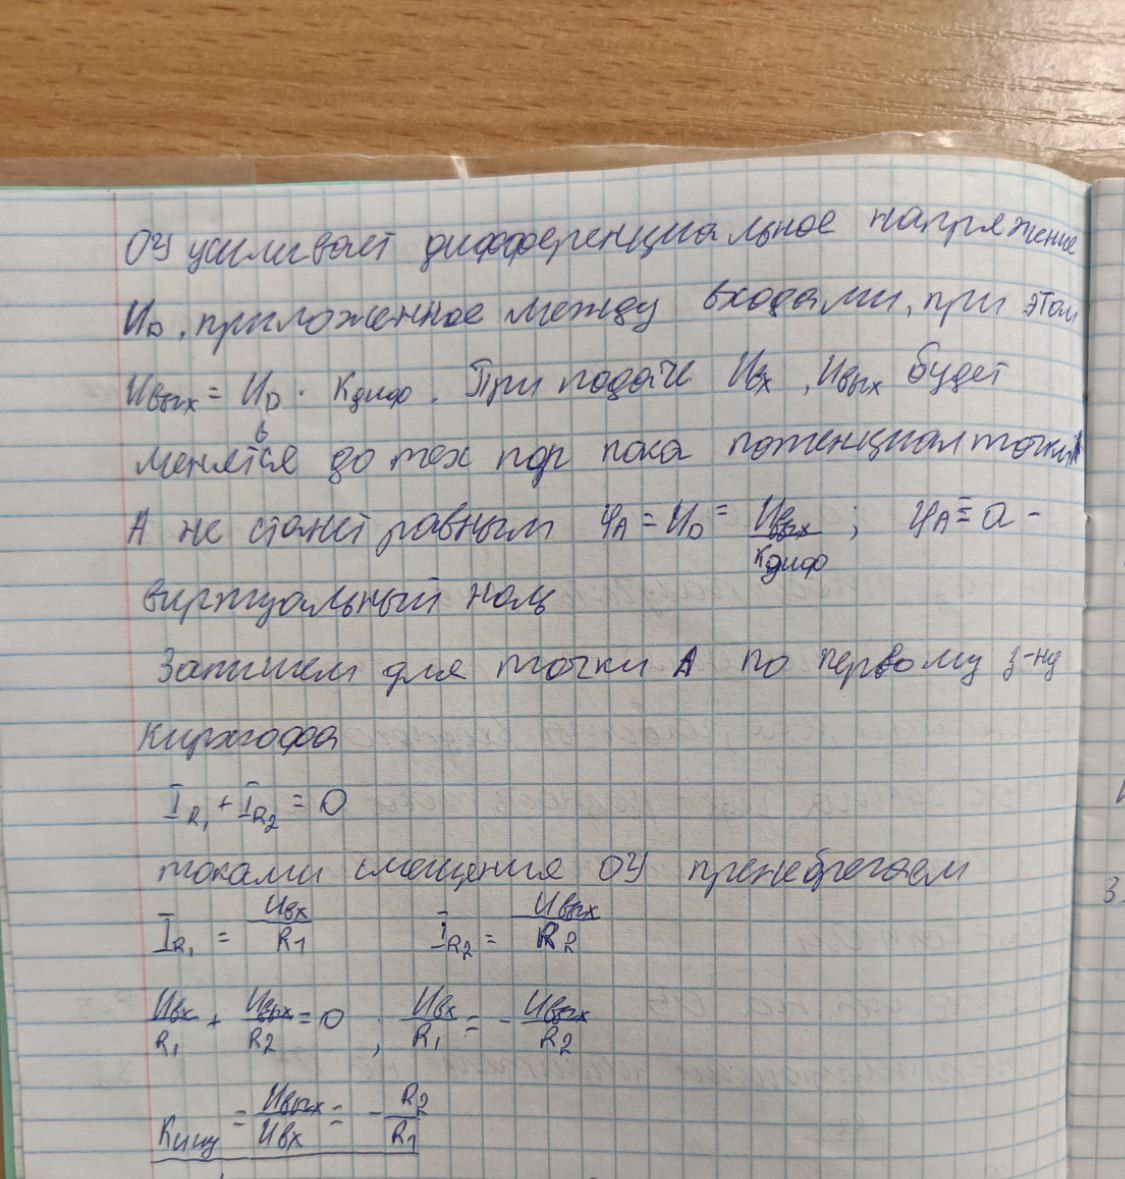 ОУ усиливает дифференциальное напряжение
U_D, приложенное между входами, при этом
U_вых = U_D · K_диф. При подаче U_вх, U_вых будет
меняться до тех пор пока потенциал точки
А не станет равным φ_A = U_D = U_вых / K_диф ; φ_A ≡ 0 -
виртуальный ноль
Запишем для точки А по первому з-ну
Кирхгофа
I_R1 + I_R2 = 0
токами смещения ОУ пренебрегаем
I_R1 = U_вх / R_1 I_R2 = U_вых / R_2
U_вх / R_1 + U_вых / R_2 = 0 ; U_вх / R_1 = - U_вых / R_2
K_ину = U_вых / U_вх = - R_2 / R_1